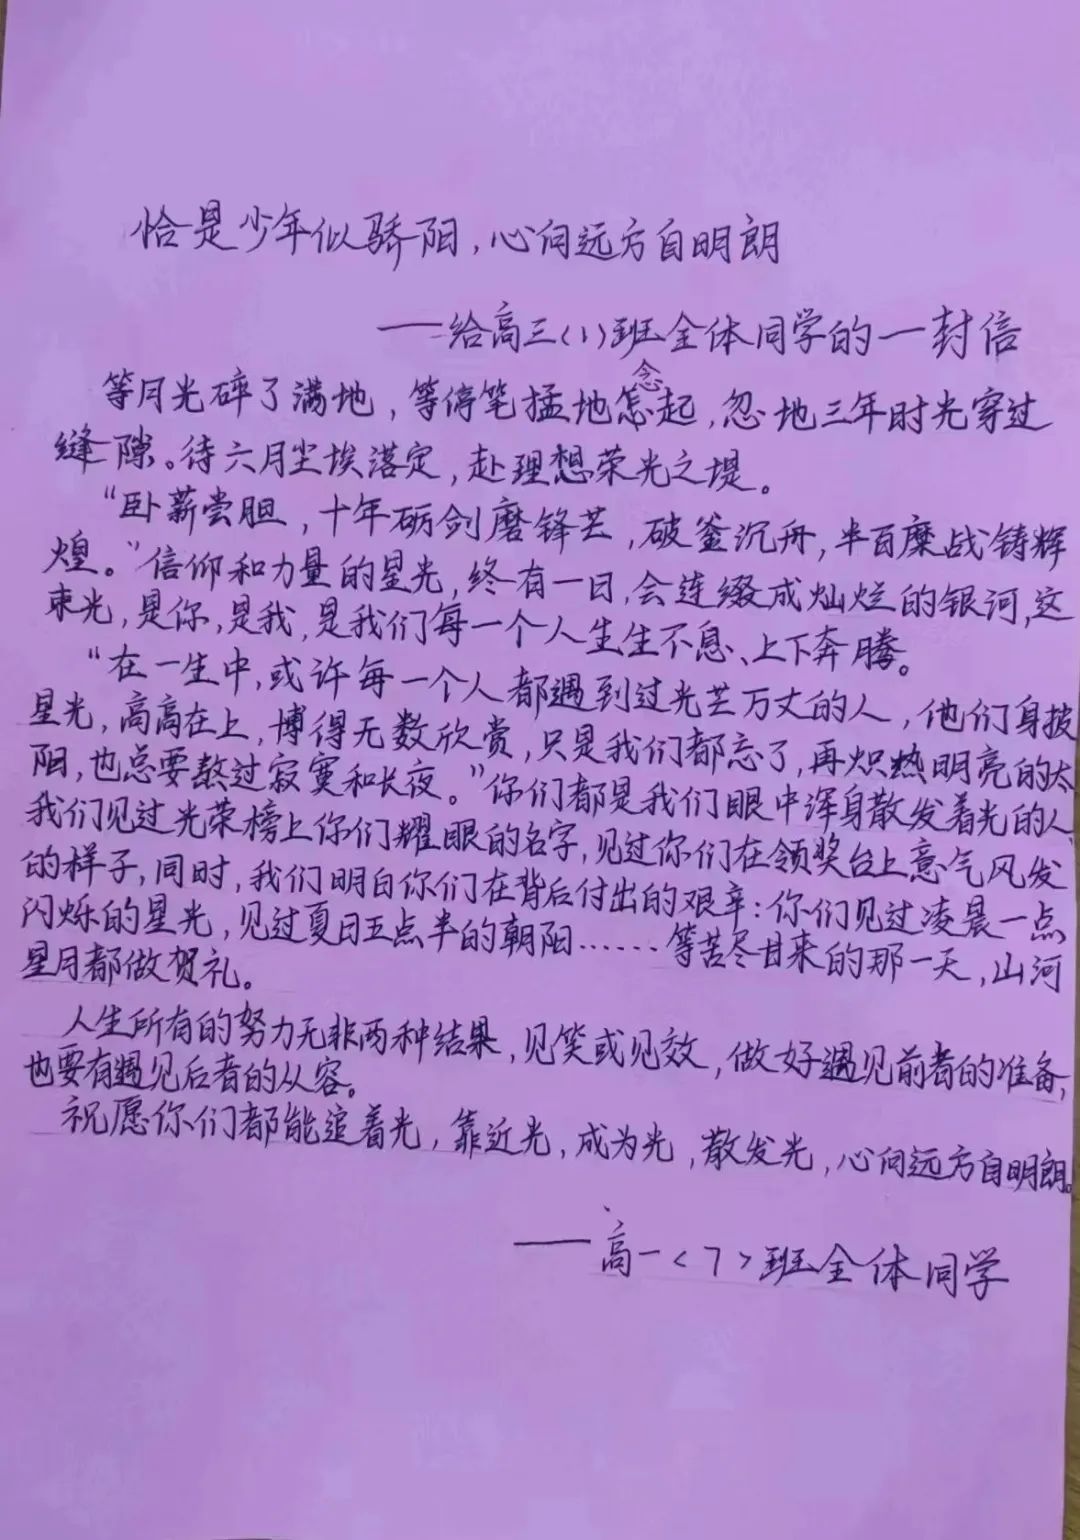 恰是少年似骄阳，心向远方自明朗
——给高三(1)班全体同学的一封信
等月光碎了满地，等停笔猛地念起，忽地三年时光穿过
缝隙。待六月尘埃落定，赴理想荣光之堤。
“卧薪尝胆，十年砺剑磨锋芒，破釜沉舟，半百糜战铸辉
煌。”信仰和力量的星光，终有一日，会连缀成灿烂的银河，这
束光，是你，是我，是我们每一个人生生不息、上下奔腾。
“在一生中，或许每一个人都遇到过光芒万丈的人，他们身披
星光，高高在上，博得无数欣赏，只是我们都忘了，再炽热明亮的太
阳，也总要熬过寂寞和长夜。”你们都是我们眼中浑身散发着光的人，
我们见过光荣榜上你们耀眼的名字，见过你们在领奖台上意气风发
的样子，同时，我们明白你们在背后付出的艰辛：你们见过凌晨一点
闪烁的星光，见过夏日五点半的朝阳……等苦尽甘来的那一天，山河
星月都做贺礼。
人生所有的努力无非两种结果，见笑或见效，做好遇见前者的准备，
也要有遇见后者的从容。
祝愿你们都能追着光，靠近光，成为光，散发光，心向远方自明朗。
——高一<7>班全体同学